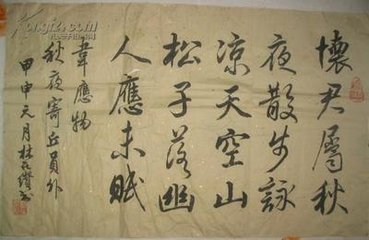 懷君屬秋
夜散步詠
涼天空山
松子落幽
人應未眠
韋應物
秋夜寄丘員外
甲申元月林